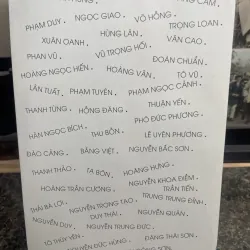 PHẠM DUY . NGỌC GIAO . VÕ HỒNG .
XUÂN OANH . HÙNG LÂN . TRỌNG LOAN .
PHAN VŨ . VŨ TRỌNG HỐI . VĂN CAO .
HOÀNG NGỌC HIẾN . HOÀNG VÂN . ĐOÀN CHUẨN .
LÂN TUẤT . PHẠM TUYÊN . PHẠM NGỌC CẢNH . TÔ VŨ .
THANH TÙNG . HỒNG ĐĂNG . THUẬN YẾN .
HÀN NGỌC BÍCH . THU BỒN . PHÓ ĐỨC PHƯƠNG .
ĐÀO CẢNG . BẰNG VIỆT . LÊ UYÊN PHƯƠNG .
NGUYỄN BẮC SƠN .
THANH THẢO . TẠ BÔN . HOÀNG HƯNG .
HOÀNG TRẦN CƯƠNG . NGUYỄN KHOA ĐIỀM .
THÁI BÁ LỢI . NGUYỄN TRỌNG TẠO . TRẦN TIẾN .
NGUYỄN DUY . DUY THÁI . TRUNG TRUNG ĐỈNH .
NGUYỄN QUÂN .
TÔ THÙY YÊN . NGUYỄN ĐỨC HÙNG . ĐẶNG THÁI SƠN .